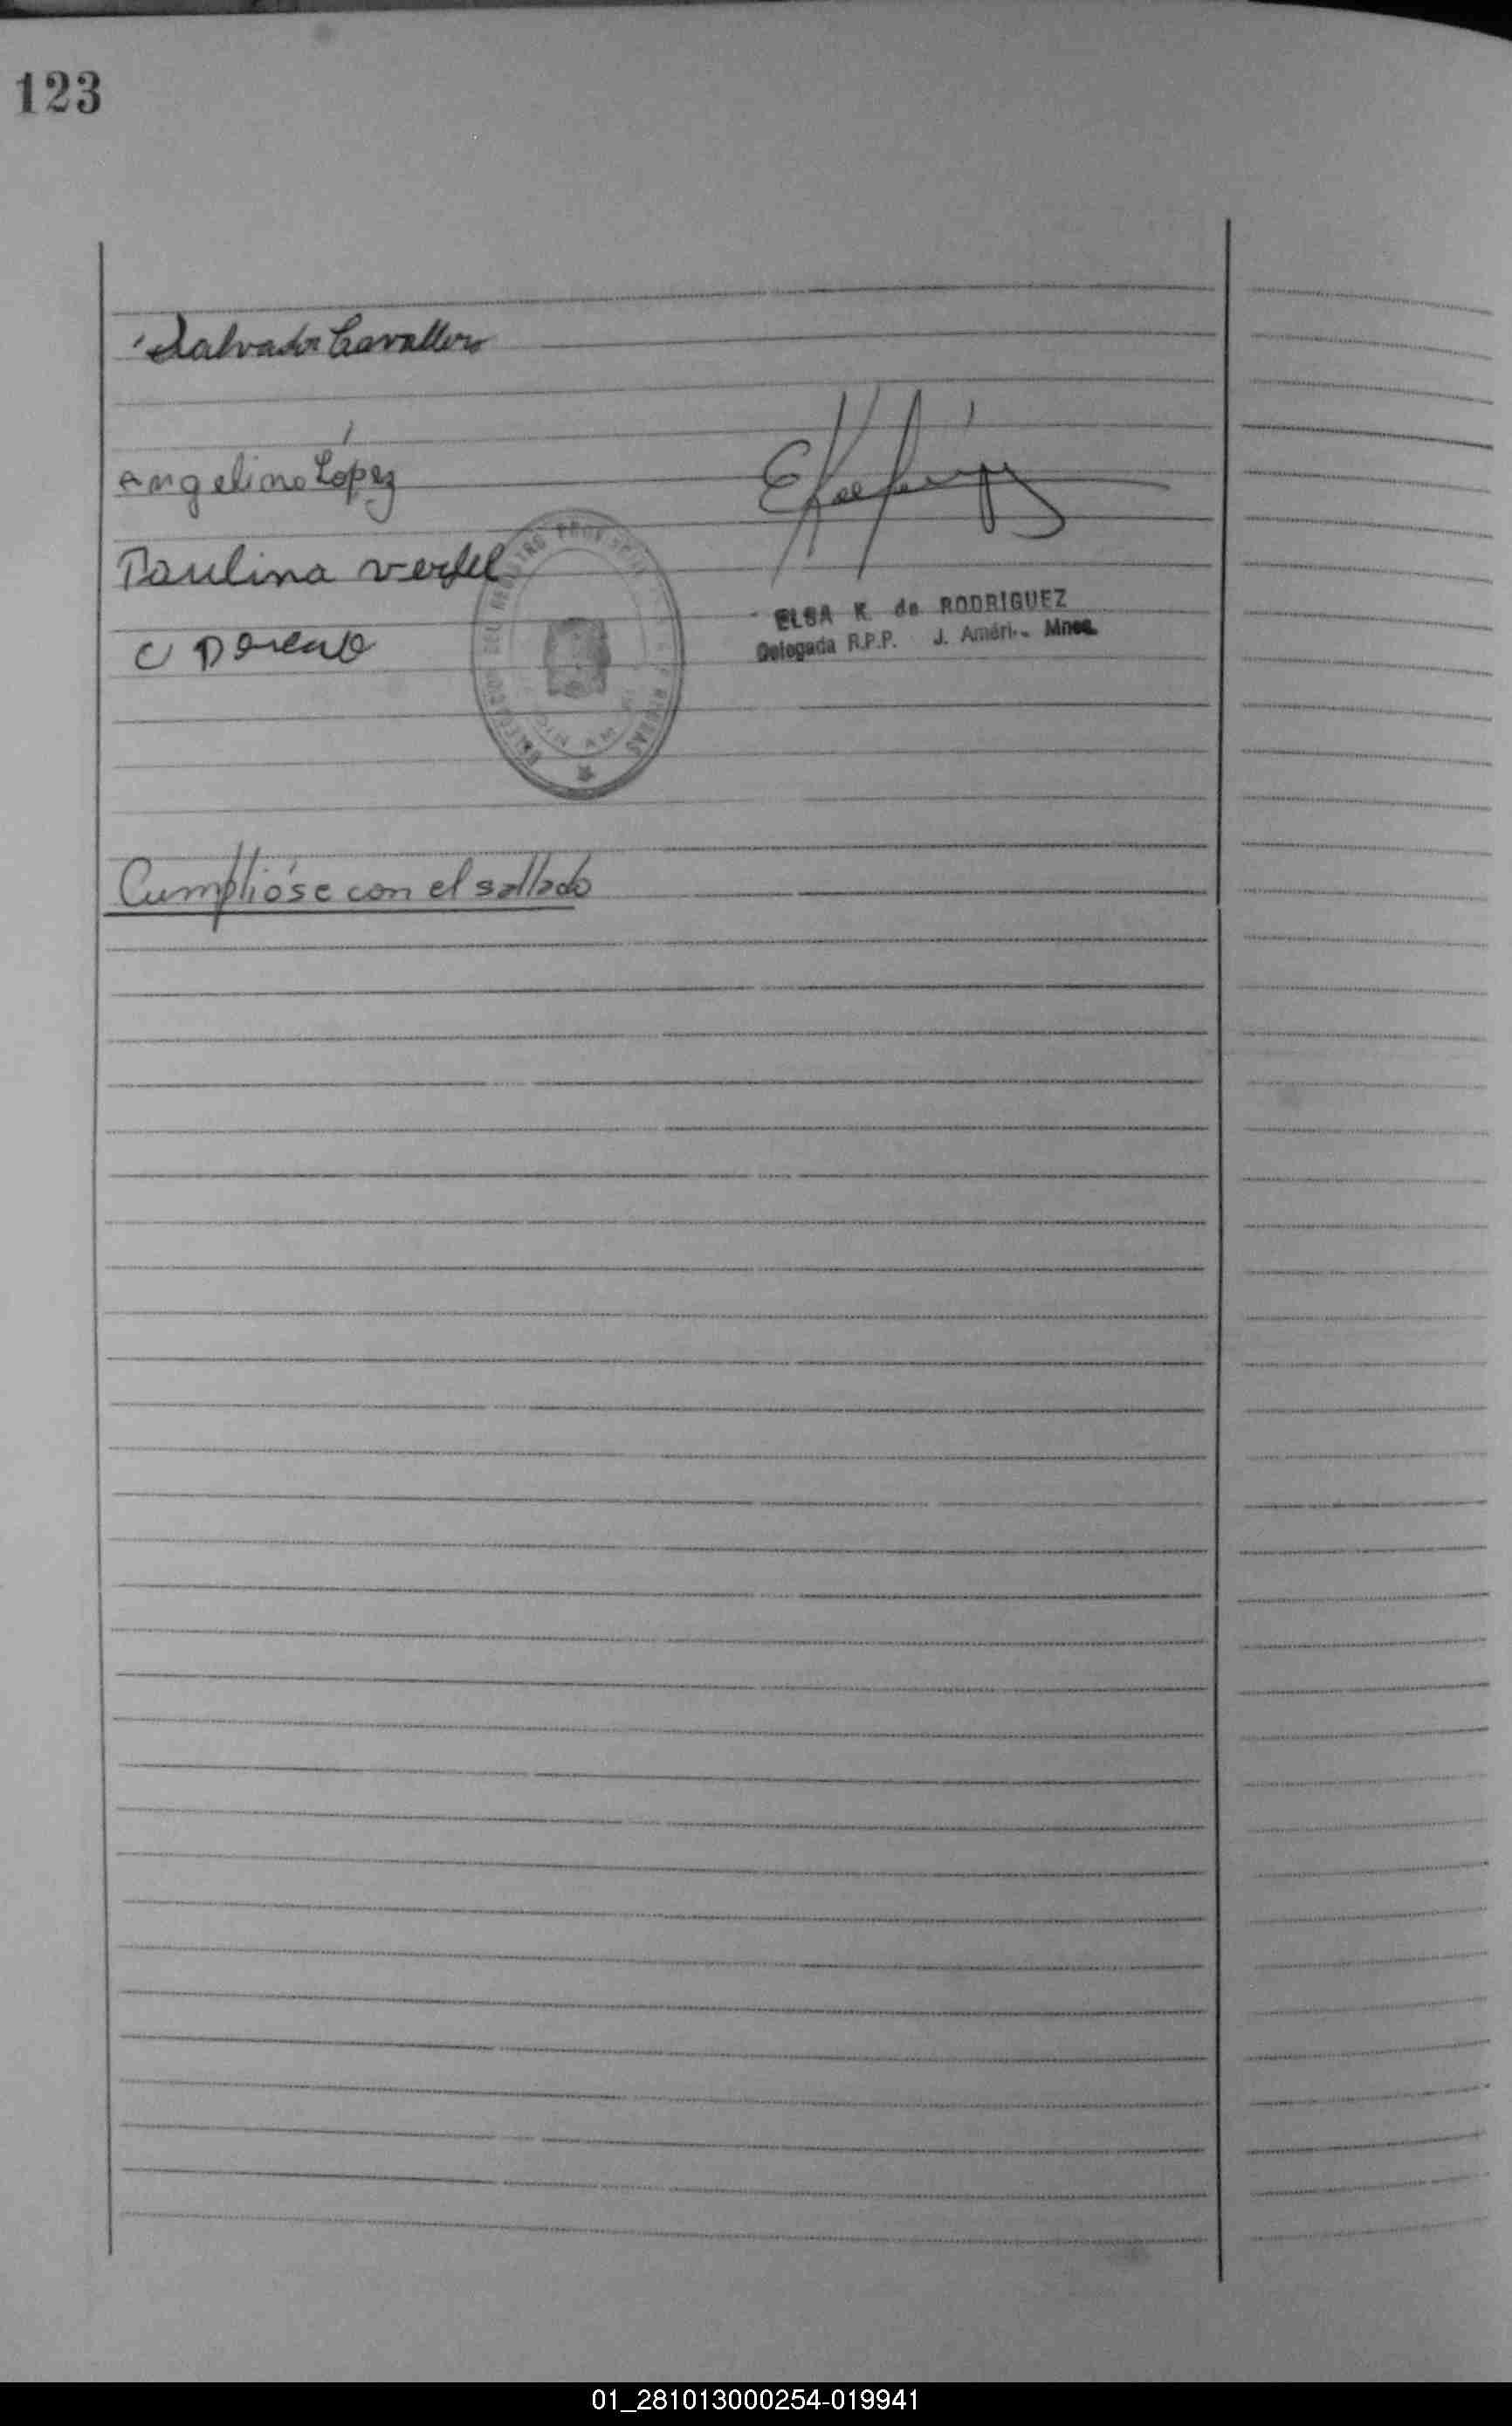 123
Salvador Cavallero
Angelino López
Paulina
C
DEL REGISTRO PROVINCIAL
ELSA K. de RODRIGUEZ
Delegada R.P.P. J. Améri-- Mnes.
Cumplióse con el sellado
01_281013000254-019941